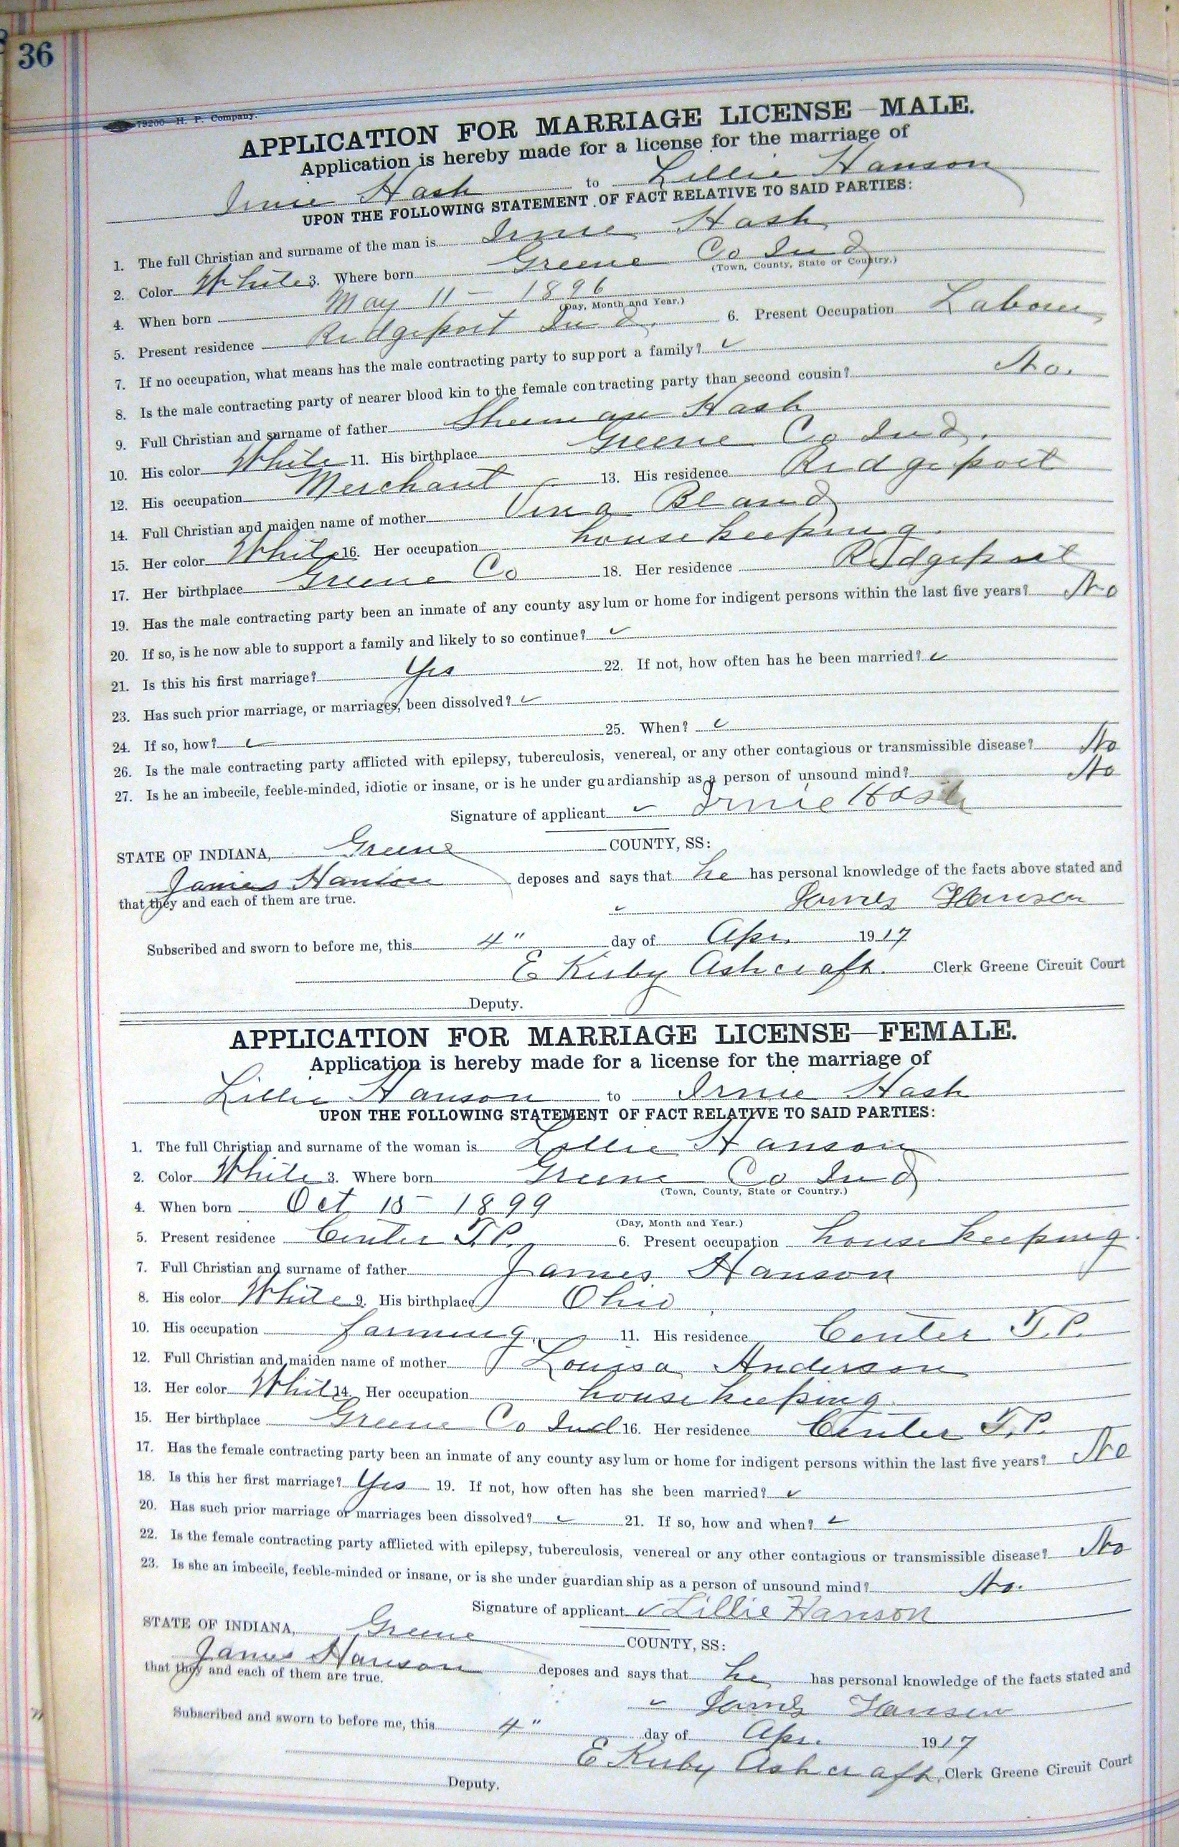 36
79200—H. P. Company.
APPLICATION FOR MARRIAGE LICENSE—MALE.
Application is hereby made for a license for the marriage of
Irvie Hash to Lillie Hanson
UPON THE FOLLOWING STATEMENT OF FACT RELATIVE TO SAID PARTIES:
1. The full Christian and surname of the man is Irvie Hash
2. Color White 3. Where born Greene Co Ind
(Town, County, State or Country.)
4. When born May 11 - 1896
(Day, Month and Year.)
5. Present residence Ridgeport Ind. 6. Present Occupation Labour
7. If no occupation, what means has the male contracting party to support a family? ✓
8. Is the male contracting party of nearer blood kin to the female contracting party than second cousin? No.
9. Full Christian and surname of father Sherman Hash
10. His color White 11. His birthplace Greene Co Ind.
12. His occupation Merchant 13. His residence Ridgeport
14. Full Christian and maiden name of mother Vina Bland
15. Her color White 16. Her occupation housekeeping.
17. Her birthplace Greene Co 18. Her residence Ridgeport
19. Has the male contracting party been an inmate of any county asylum or home for indigent persons within the last five years? No
20. If so, is he now able to support a family and likely to so continue? ✓
21. Is this his first marriage? Yes 22. If not, how often has he been married? ✓
23. Has such prior marriage, or marriages, been dissolved? ✓
24. If so, how? ✓ 25. When? ✓
26. Is the male contracting party afflicted with epilepsy, tuberculosis, venereal, or any other contagious or transmissible disease? No
27. Is he an imbecile, feeble-minded, idiotic or insane, or is he under guardianship as a person of unsound mind? No
Signature of applicant ✓ Irvie Hash
STATE OF INDIANA, Greene COUNTY, SS:
James Hanson deposes and says that he has personal knowledge of the facts above stated and
that they and each of them are true.
✓ James Hanson
Subscribed and sworn to before me, this 4" day of Apr. 1917
E Kirby Ashcraft. Clerk Greene Circuit Court
Deputy.
APPLICATION FOR MARRIAGE LICENSE—FEMALE.
Application is hereby made for a license for the marriage of
Lillie Hanson to Irvie Hash
UPON THE FOLLOWING STATEMENT OF FACT RELATIVE TO SAID PARTIES:
1. The full Christian and surname of the woman is Lillie Hanson
2. Color White 3. Where born Greene Co Ind
(Town, County, State or Country.)
4. When born Oct 15 - 1899
(Day, Month and Year.)
5. Present residence Center T.P. 6. Present occupation housekeeping.
7. Full Christian and surname of father James Hanson
8. His color White 9. His birthplace Ohio
10. His occupation farming. 11. His residence Center T.P.
12. Full Christian and maiden name of mother Louisa Anderson
13. Her color White 14. Her occupation housekeeping.
15. Her birthplace Greene Co Ind 16. Her residence Center T.P.
17. Has the female contracting party been an inmate of any county asylum or home for indigent persons within the last five years? No
18. Is this her first marriage? Yes 19. If not, how often has she been married? ✓
20. Has such prior marriage or marriages been dissolved? ✓ 21. If so, how and when? ✓
22. Is the female contracting party afflicted with epilepsy, tuberculosis, venereal or any other contagious or transmissible disease? No
23. Is she an imbecile, feeble-minded or insane, or is she under guardianship as a person of unsound mind? No.
Signature of applicant ✓ Lillie Hanson
STATE OF INDIANA, Greene COUNTY, SS:
James Hanson deposes and says that he has personal knowledge of the facts stated and
that they and each of them are true.
✓ James Hanson
Subscribed and sworn to before me, this 4" day of Apr. 1917
E Kirby Ashcraft, Clerk Greene Circuit Court
Deputy.